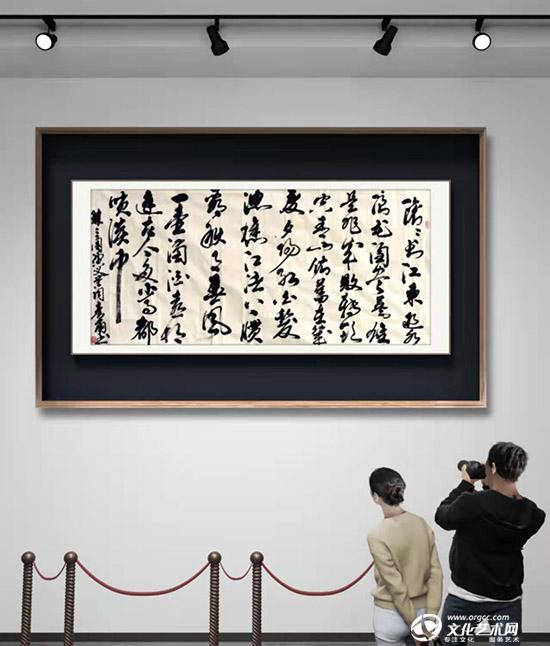 滚滚长江东逝水
浪花淘尽英雄
是非成败转头
空青山依旧在几
度夕阳红白发
渔樵江渚上惯
看秋月春风
一壶浊酒喜相
逢古今多少事都
笑谈中
录三国演义词
www.orgcc.com
文化艺术网
专注文化 服务艺术